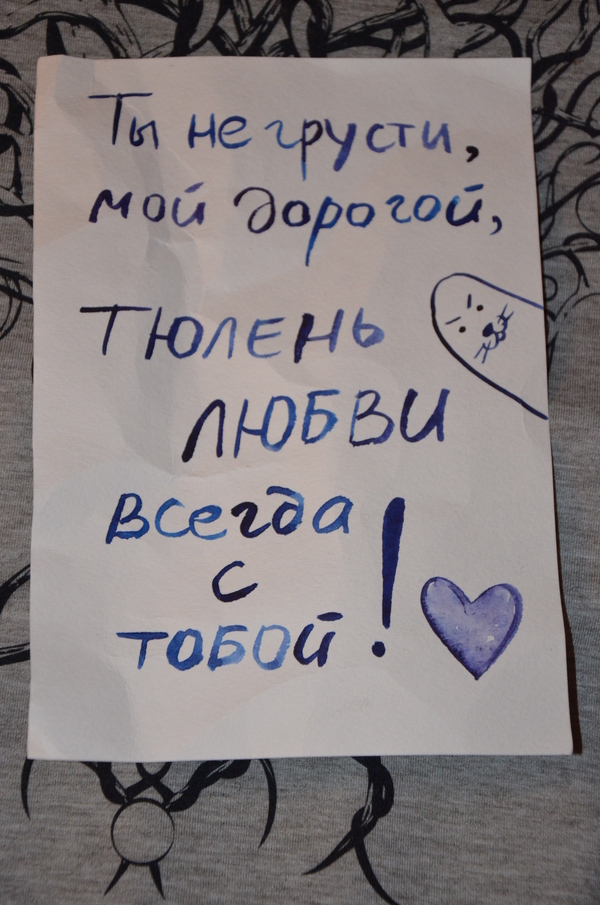 Ты не грусти,
мой дорогой,
ТЮЛЕНЬ
ЛЮБВИ
всегда
с
тобой!